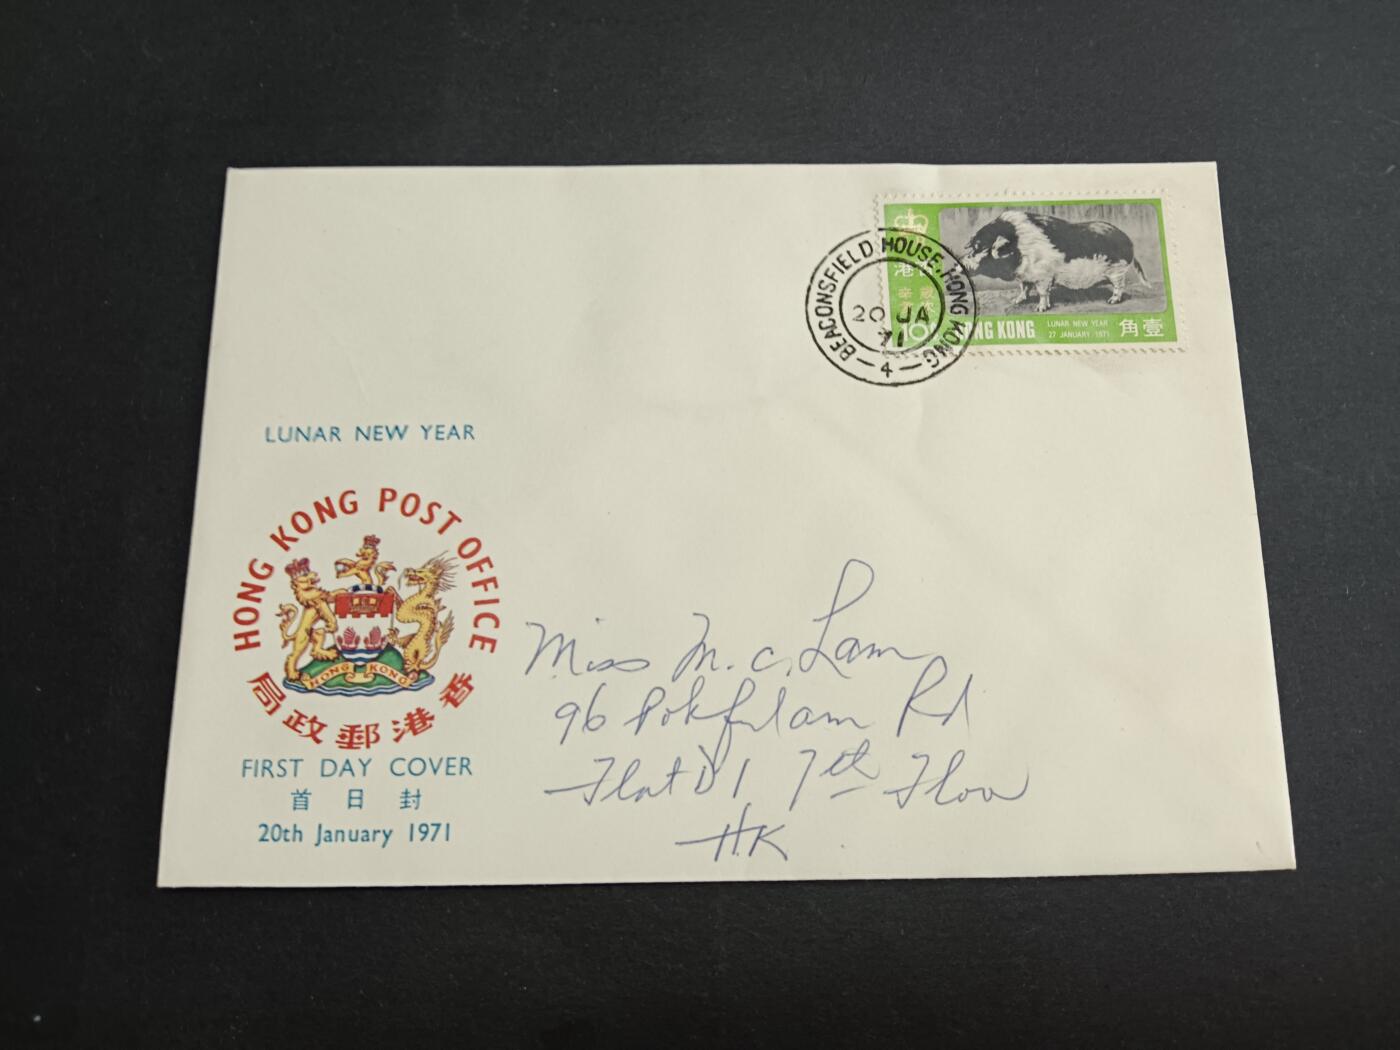 BEACONSFIELD HOUSE, HONG KONG
20 JA
71
4
港
歲次
辛亥
10c HONG KONG
LUNAR NEW YEAR
27 JANUARY 1971
角壹
LUNAR NEW YEAR
HONG KONG POST OFFICE
HONG KONG
局政郵港香
FIRST DAY COVER
首日封
20th January 1971
Miss M. C. Lam
96 Pokfulam Rd
Flat D1 7th Floor
H.K